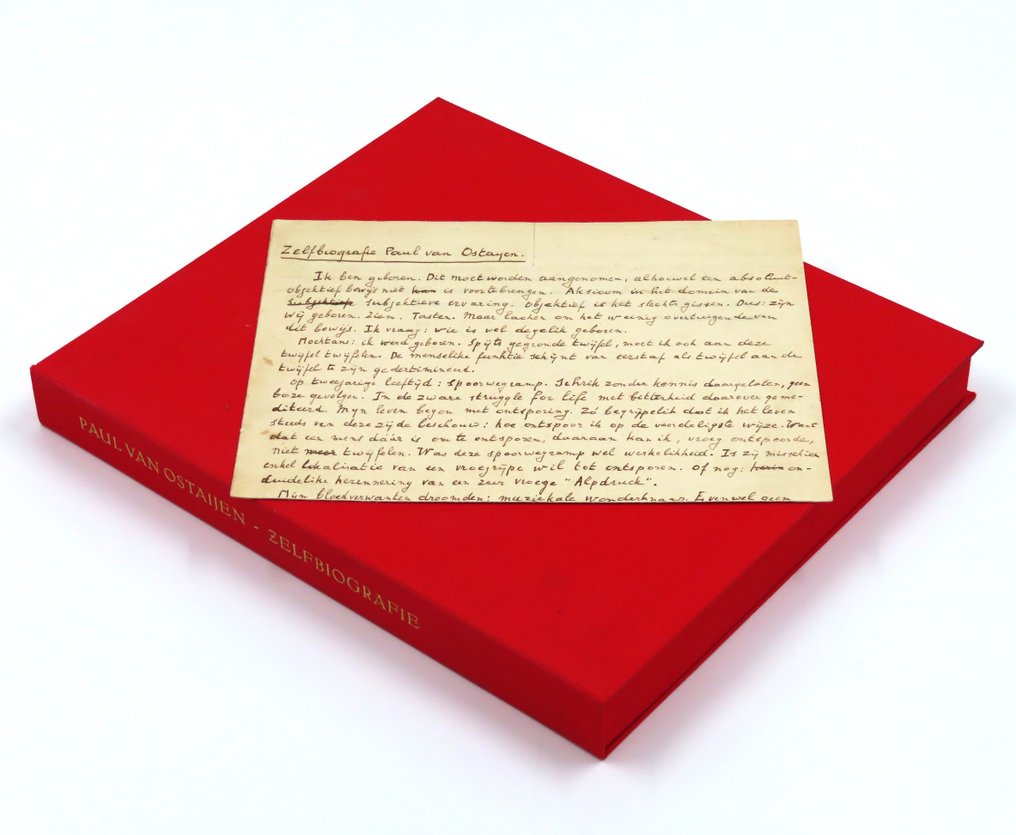 Zelfbiografie Paul van Ostayen.
Ik ben geboren. Dit moet worden aangenomen, alhoewel een absoluut-
objektief bewijs niet is voor te brengen. Aksioom in het domein van de
subjektieve ervaring. Objektief is het slechts gissen. Dus: zijn
wij geboren. Zien. Tasten. Maar lachen om het weinig overtuigende van
dit bewijs. Ik vraag: wie is wel degelik geboren.
Nochtans: ik werd geboren. Spijts gegronde twijfel, moet ik ook aan deze
twijfel twijfelen. De menselike funktie schijnt van eerstaf als twijfel aan de
twijfel te zijn gedertimineerd.
Op tweejarige leeftijd: spoorwegramp. Schrik zonder kennis daargelaten, geen
boze gevolgen. In de zware struggle for life met betterheid daarover geme-
diteerd. Mijn leven begon met ontsporing. Zó begrijpelik dat ik het leven
steeds van deze zijde beschouw: hoe ontspoor ik op de voordeligste wijze. Want
dat een mens dáár is om te ontsporen, daaraan kan ik, vroeg ontspoorde,
niet meer twijfelen. Was deze spoorwegramp wel werkelikheid. Is zij misschien
enkel lokalisatie van een vroegrijpe wil tot ontsporen. Of nog: on-
duidelike herinnering van een zeer vroege "Alpdruck".
Mijn bloedverwanten droomden: muziekale wonderknaap. Evenwel geen
PAUL VAN OSTAIJEN - ZELFBIOGRAFIE